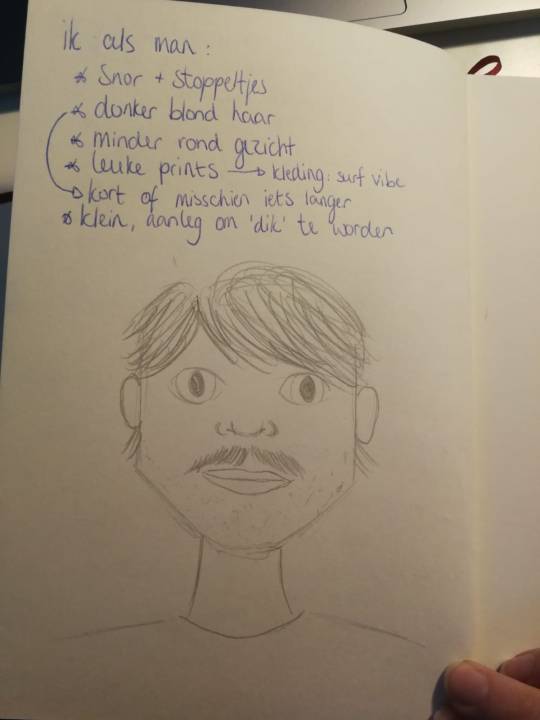 ik als man :
* Snor + stoppeltjes
* donker blond haar
* minder rond gezicht
* leuke prints → kleding: surf vibe
→ kort of misschien iets langer
* klein, aanleg om 'dik' te worden